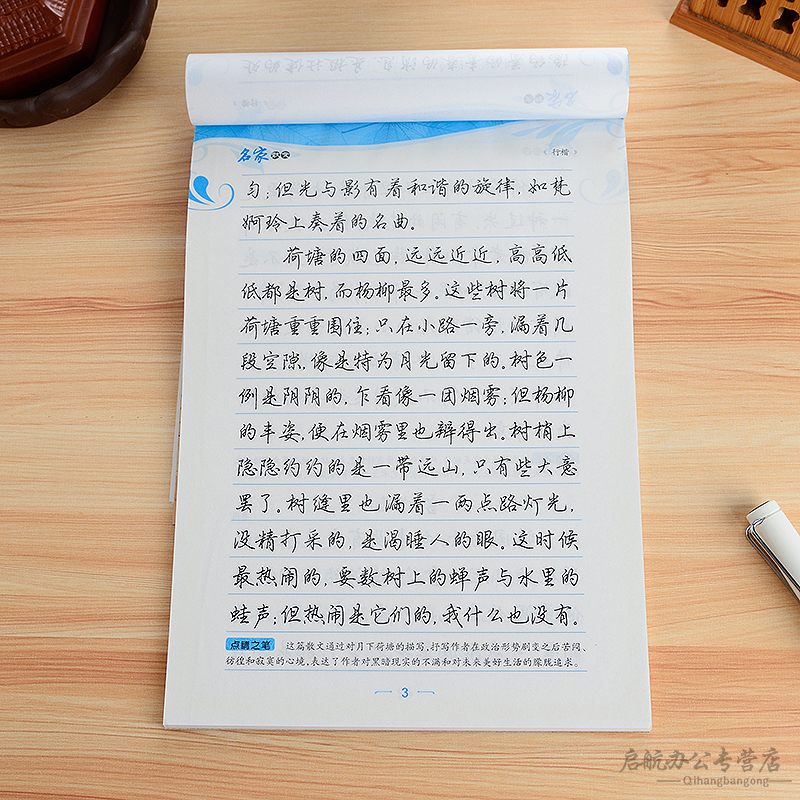 名家散文
行楷
匀；但光与影有着和谐的旋律，如梵
婀玲上奏着的名曲。
荷塘的四面，远远近近，高高低
低都是树，而杨柳最多。这些树将一片
荷塘重重围住；只在小路一旁，漏着几
段空隙，像是特为月光留下的。树色一
例是阴阴的，乍看像一团烟雾；但杨柳
的丰姿，便在烟雾里也辨得出。树梢上
隐隐约约的是一带远山，只有些大意
罢了。树缝里也漏着一两点路灯光，
没精打采的，是渴睡人的眼。这时候
最热闹的，要数树上的蝉声与水里的
蛙声；但热闹是它们的，我什么也没有。
点睛之笔 这篇散文通过对月下荷塘的描写，抒写作者在政治形势剧变之后苦闷、
彷徨和寂寞的心境，表达了作者对黑暗现实的不满和对未来美好生活的朦胧追求。
3
启航办公专营店
Qihangbangong